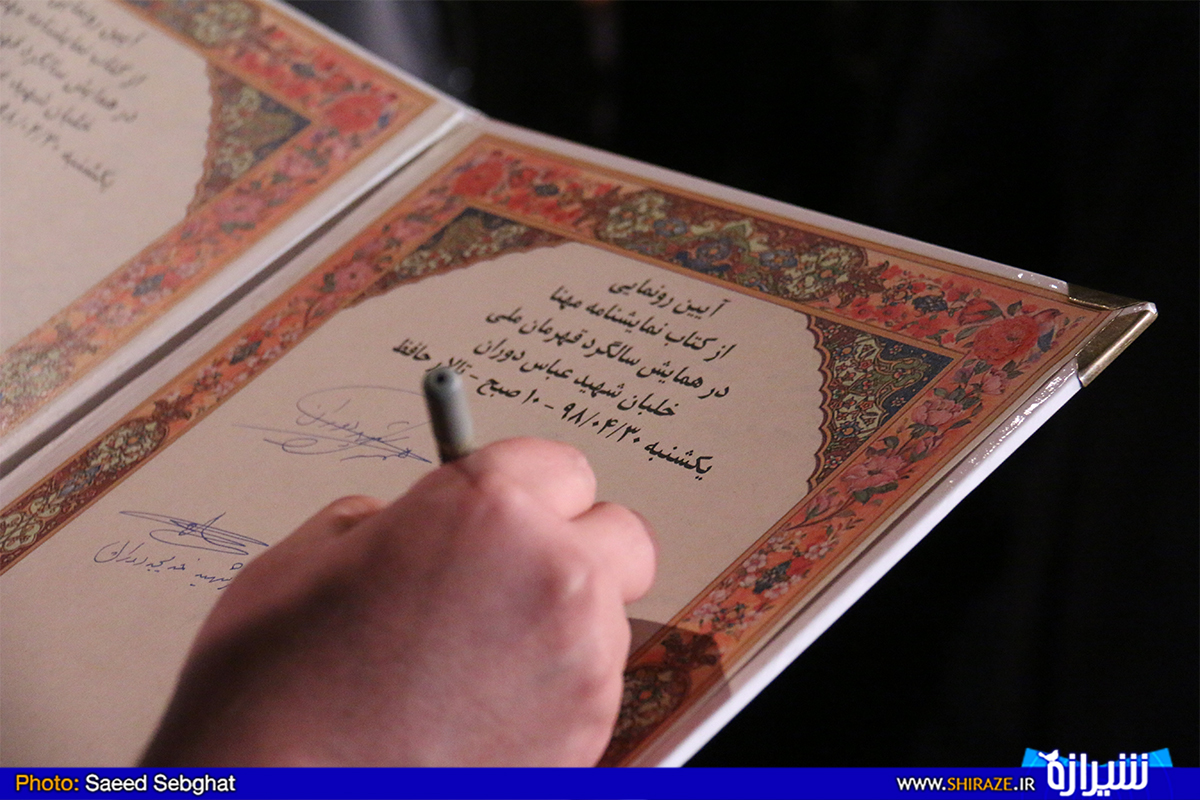 آیین رونمایی
از کتاب نمایشنامه مهنا
در همایش سالگرد قهرمان ملی
خلبان شهید عباس دوران
یکشنبه ۹۸/۰۴/۳۰ - ۱۰ صبح - تالار حافظ
آیین رونمایی
از کتاب نمایشنامه
در همایش سالگرد
خلبان شهید
یکشنبه
Photo: Saeed Sebghat
www.SHIRAZE.IR
شیرازه